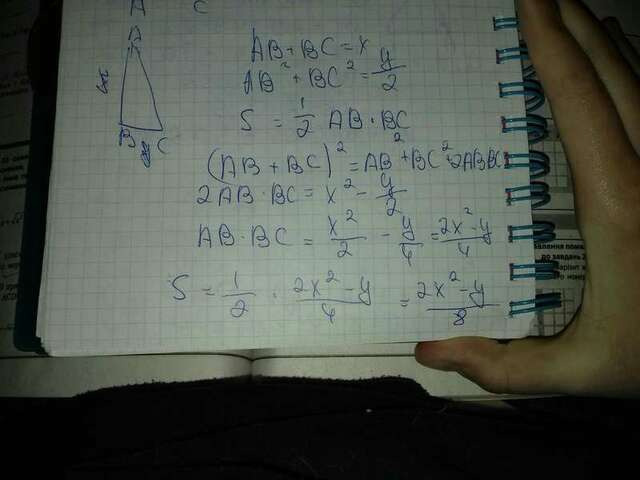 A C
A
B C
AB + BC = x
AB² + BC² = y/2
S = 1/2 AB · BC
(AB + BC)² = AB² + BC² · 2ABBC
2AB · BC = x² - y/2
AB · BC = x²/2 - y/4 = 2x² - y/4
S = 1/2 · 2x² - y/4 = 2x² - y/8
до завдань 2